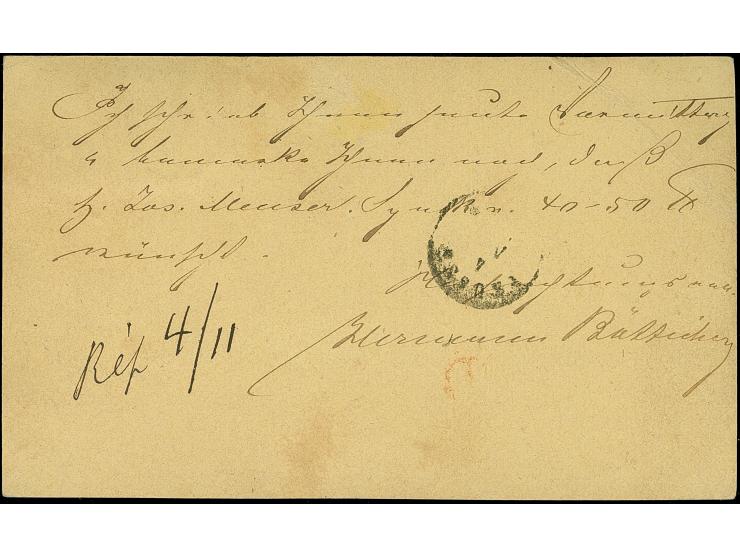 Ich schrieb Ihnen heute Vormittag
u bemerke Ihnen noch, daß
H. Jos. Menser. 40-50 ℔
wünscht.
Hochachtungsvoll
Hermann Bötticher
Rép 4/11